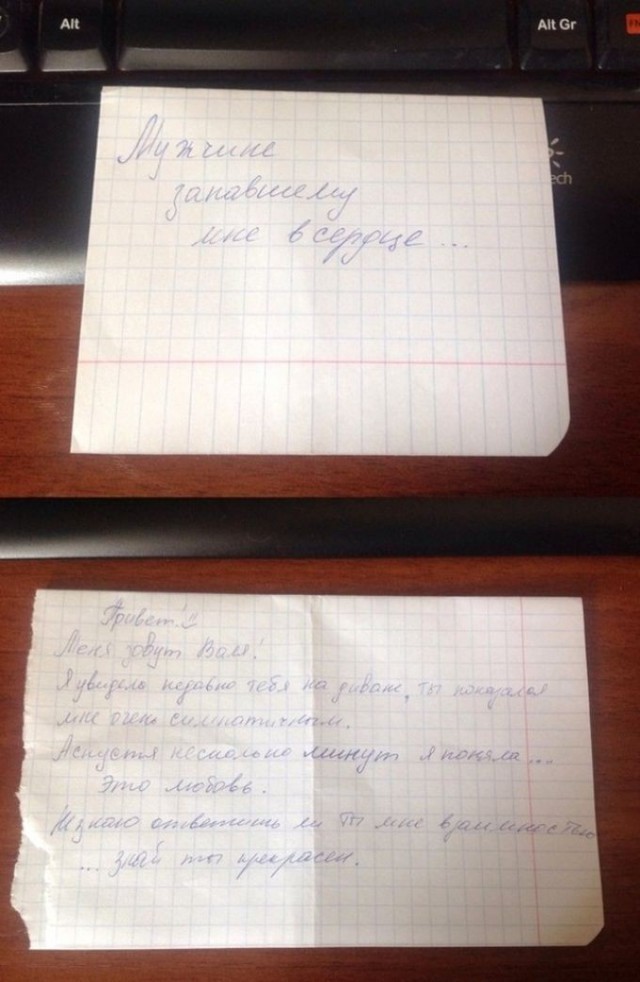 Alt
Alt Gr
FN
Мужчине
запавшему
мне в сердце...
tech
Привет!
Меня зовут Валя!
Я увидела недавно тебя на диване, ты показался
мне очень симпатичным.
А спустя несколько минут я поняла...
Это любовь.
Не знаю ответишь ли ты мне взаимностью
... знай ты прекрасен.